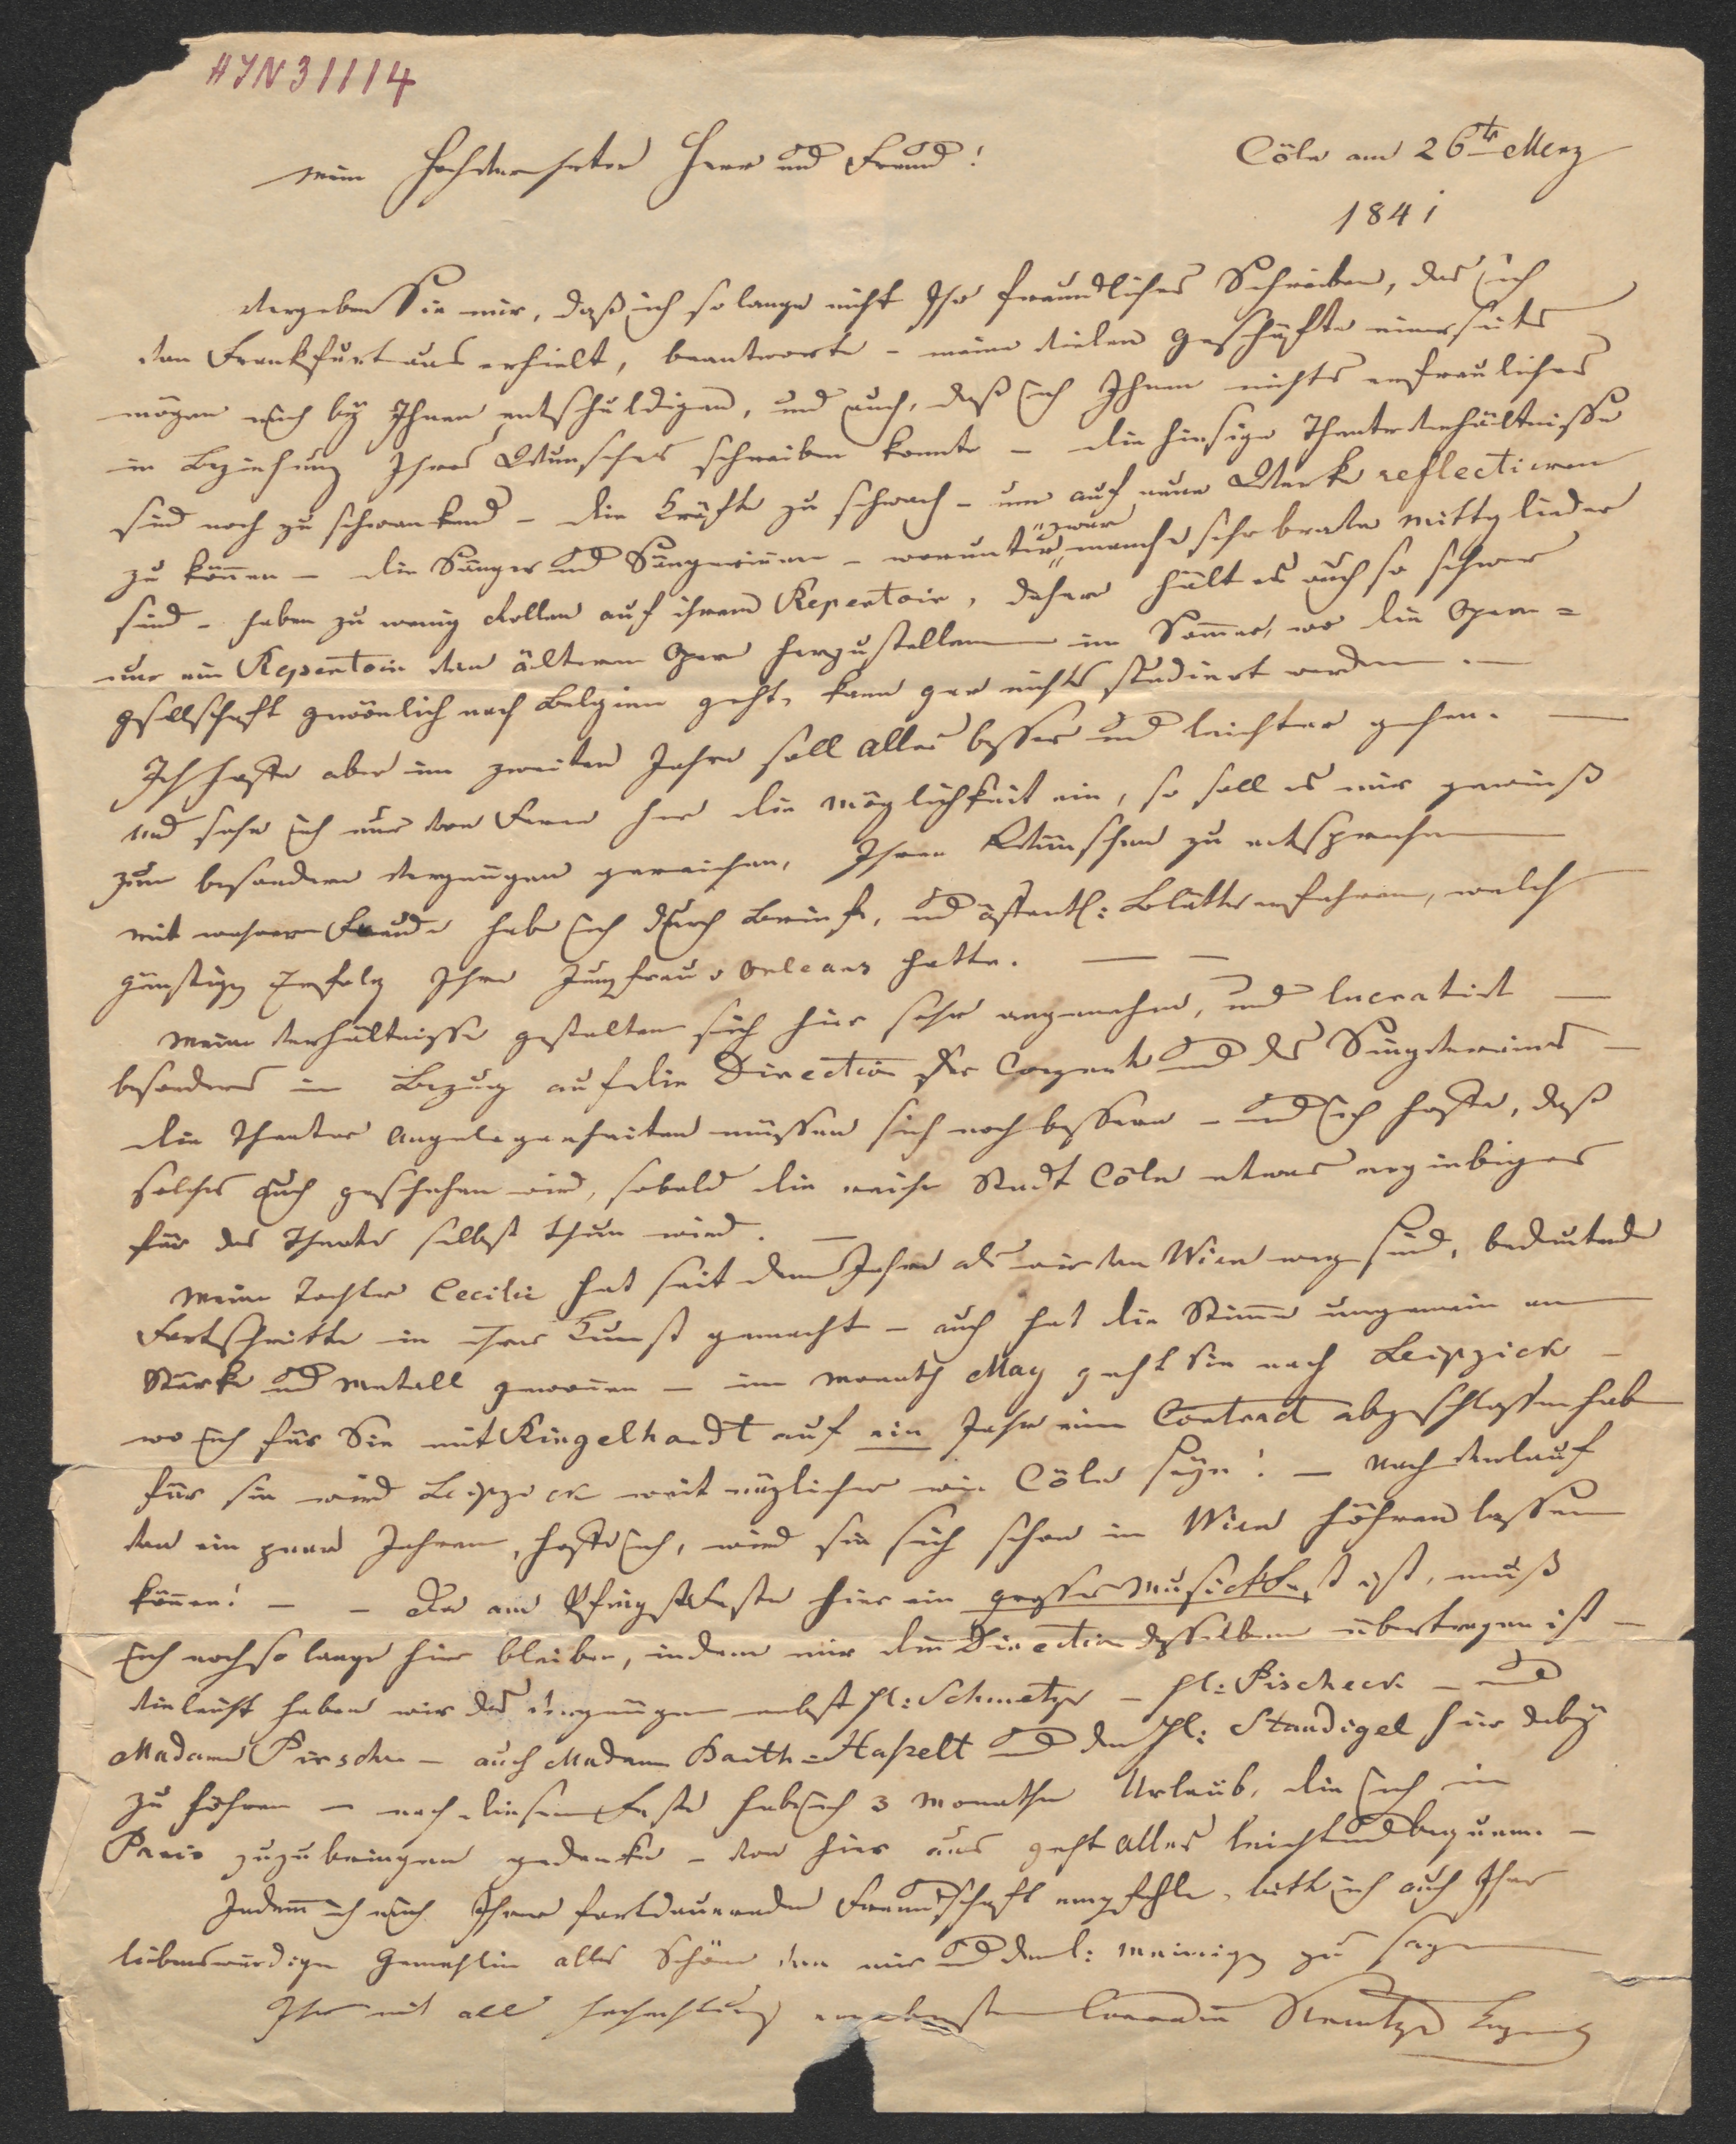 HIN 31114
Cöln am 26ten Merz
1841
mein Hochverehrter Herr und Freund!
Vergeben Sie mir, daß ich so lange nicht Ihr freundliches Schreiben, das ich
von Frankfurt aus erhielt, beantworte – meine vielen Geschäfte einerseits
mögen mich bey Ihnen entschuldigen, und auch, daß ich Ihnen nichts erfreuliches
in Beziehung Ihres Wunsches schreiben konnte – die hiesige Theaterverhältnisse
sind noch zu schwankend – die Kräfte zu schwach – um auf neue Werke reflectieren
zu können – die Sänger und Sängerinnen – worunter zwar manche sehr brave Mittglieder
sind – haben zu wenig Rollen auf ihrem Repertoir, daher hält es auch so schwer
nur ein Repertoir von älteren Opern herzustellen im Sommer, wo die Opern=
gesellschaft gewönlich nach Belgien geht, kann gar nichts studiert werden. —
Ich hoffe aber im zweiten Jahre soll alles besser und leichter gehen. —
und sehe ich nur von Ferne her die Möglichkeit ein, so soll es mir gewieß
zum besondern Vergnügen gereichen, Ihren Wünschen zu entsprechen
mit wahrer Freude habe ich durch Briefe, und öffentl: Blätter erfahren, welch
günstigen Erfolg Ihre Jungfrau v Orleans hatte. — —
Meine Verhältnisse gestalten sich hier sehr angenehm, und lucrativ —
besonders in Bezug auf die Direction der Conzerte und des Singvereines –
die Theater Angelegenheiten müssen sich noch bessern – und ich hoffe, daß
solches auch geschehen wird, sobald die reiche Stadt Cöln etwas ergiebiges
für das Theater selbst thun wird. —
Meine Tochter Cecilie hat seit dem Jahre als wir von Wien weg sind, bedeutende
Fortschritte in ihrer Kunst gemacht – auch hat die Stimme ungemein an
Stärke und Metall gewonnen – im Monath May geht sie nach Leipzick –
wo ich für Sie mit Ringelhardt auf ein Jahr einen Contract abgeschlossen habe
für sie wird Leipzick weit nüzlicher wie Cöln seyn! – Nach Verlauf
von ein paar Jahren, hoffe ich, wird sie sich schon in Wien höhren lassen
können! – – Da am Pfingstfeste hier ein grosses Musickfest ist, muß
ich noch so lange hier bleiben, indem mir die Direction desselben übertragen ist –
vieleicht haben wir das Vergnügen nebst H: Schmetzer – H: Pischeck – und
Madame Pirscher – auch Madame Barth=Haßelt und den H: Staudigel hier dabey
zu höhren – nach diesem Feste habe ich 3 Monathe Urlaub, die ich in
Paris zuzubringen gedenke – von hier aus geht alles leicht und bequem. –
Indem ich mich Ihrer fortdauernden Freundschaft empfehle, bitte ich auch Ihrer
liebenswürdigen Gemahlin alles Schöne von mir und den Meinigen zu sagen
Ihr mit all Hochachtung ergebenster Conradin Kreutzer